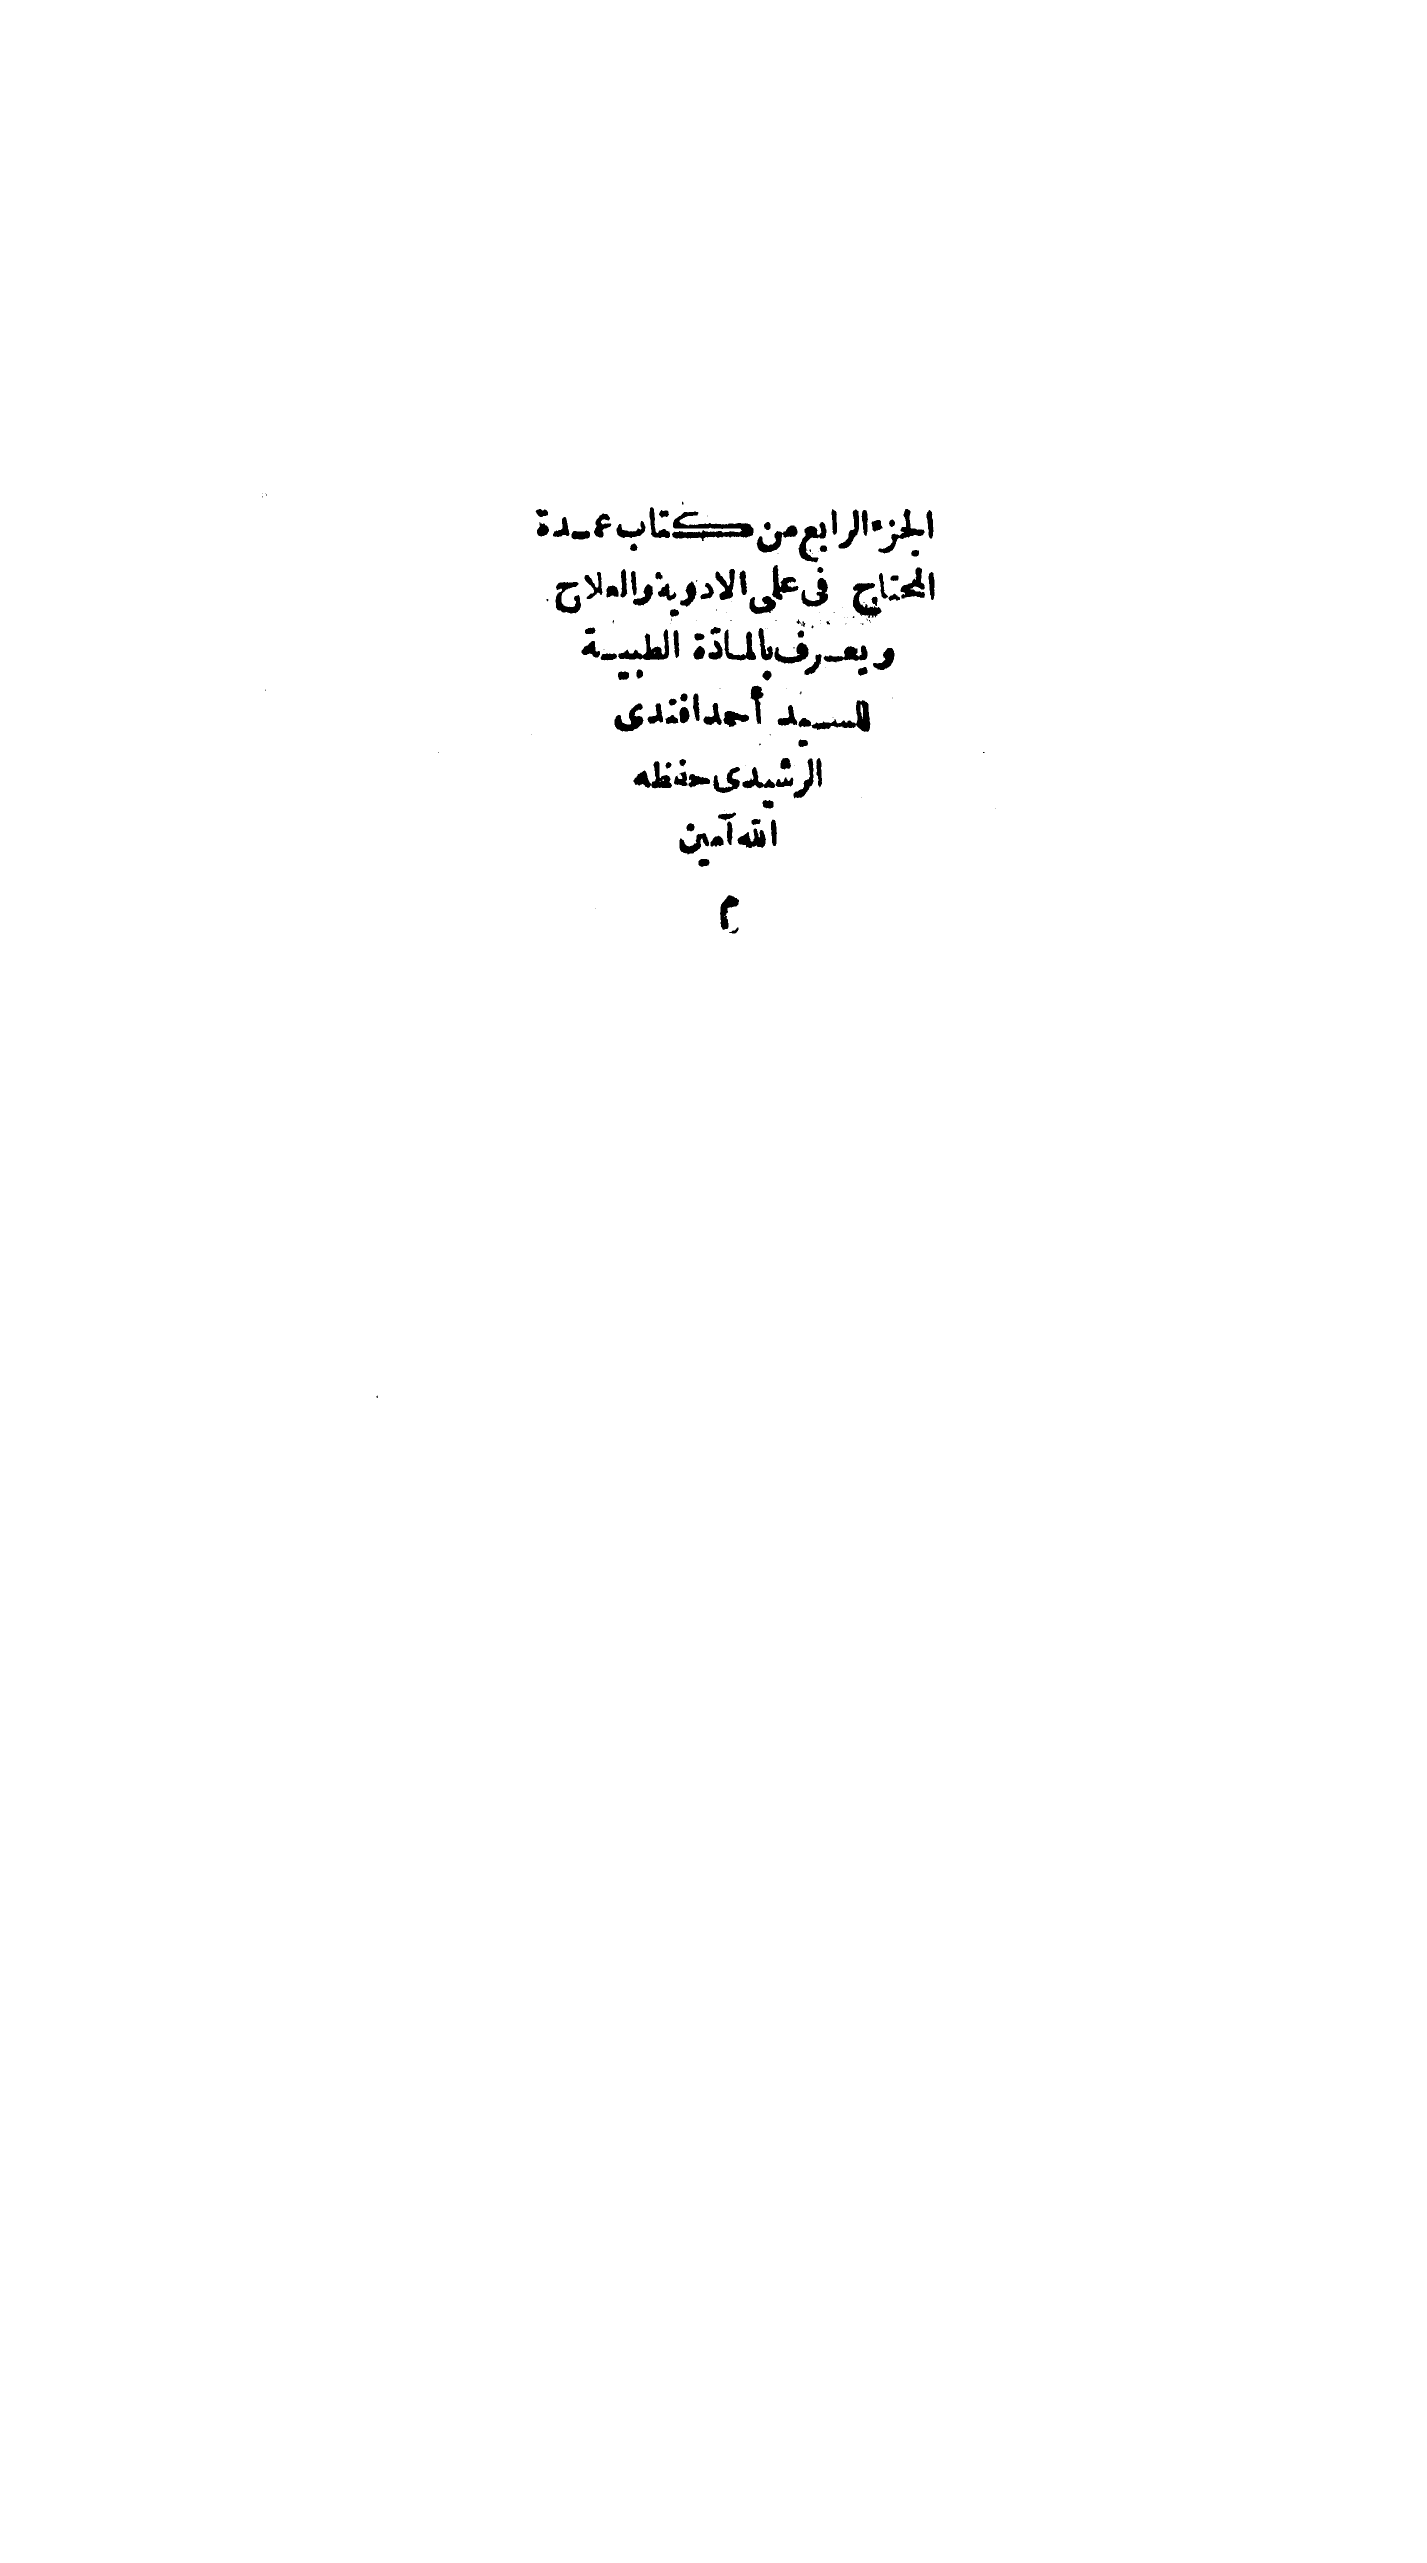 الجزء الرابع من كتاب عمدة
المحتاج فى علمى الادوية والعلاج
ويعرف بالمادّة الطبية
للسيد أحمد افندى
الرشيدى حفظه
الله آمين
م